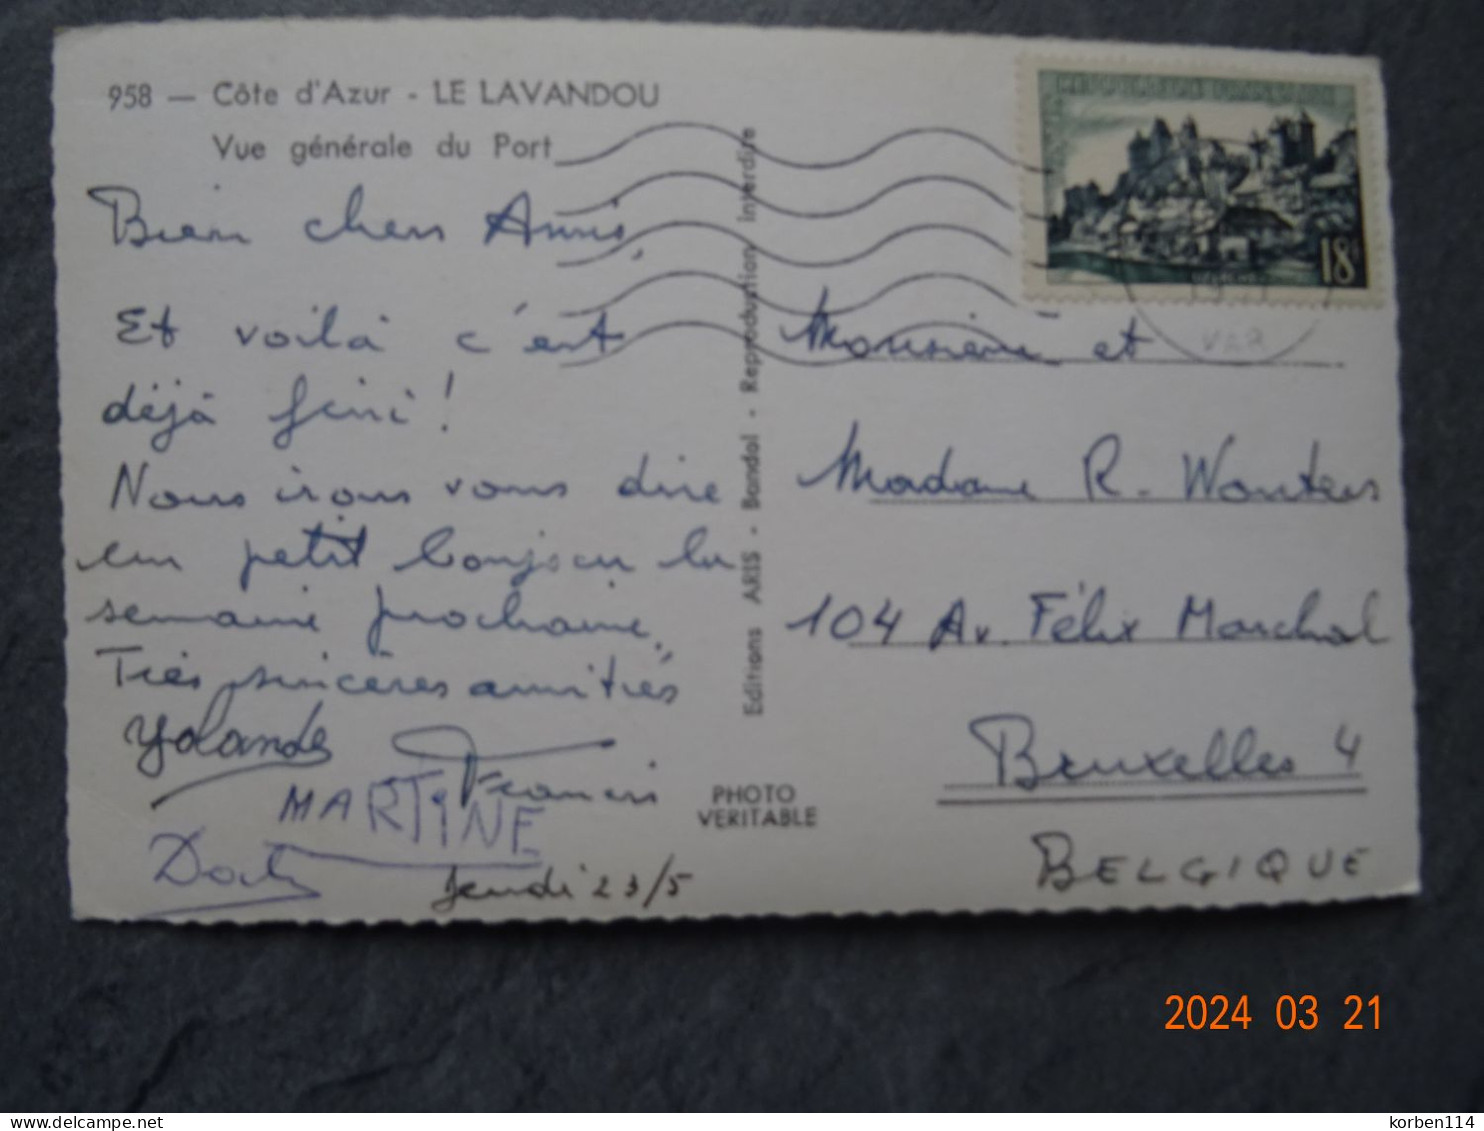 958 — Côte d'Azur - LE LAVANDOU
Vue générale du Port
Bien chers Amis,
Et voilà c'est
déjà fini!
Nous irons vous dire
un petit bonjour la
semaine prochaine.
Très sincères amitiés
Yolande Francis
MARTINE
Jeudi 23/5
Editions ARIS - Bandol - Reproduction interdite
PHOTO
VERITABLE
18F
VAR
Monsieur et
Madame R. Wouters
104 Av. Félix Marchal
Bruxelles 4
BELGIQUE
2024 03 21
korben114